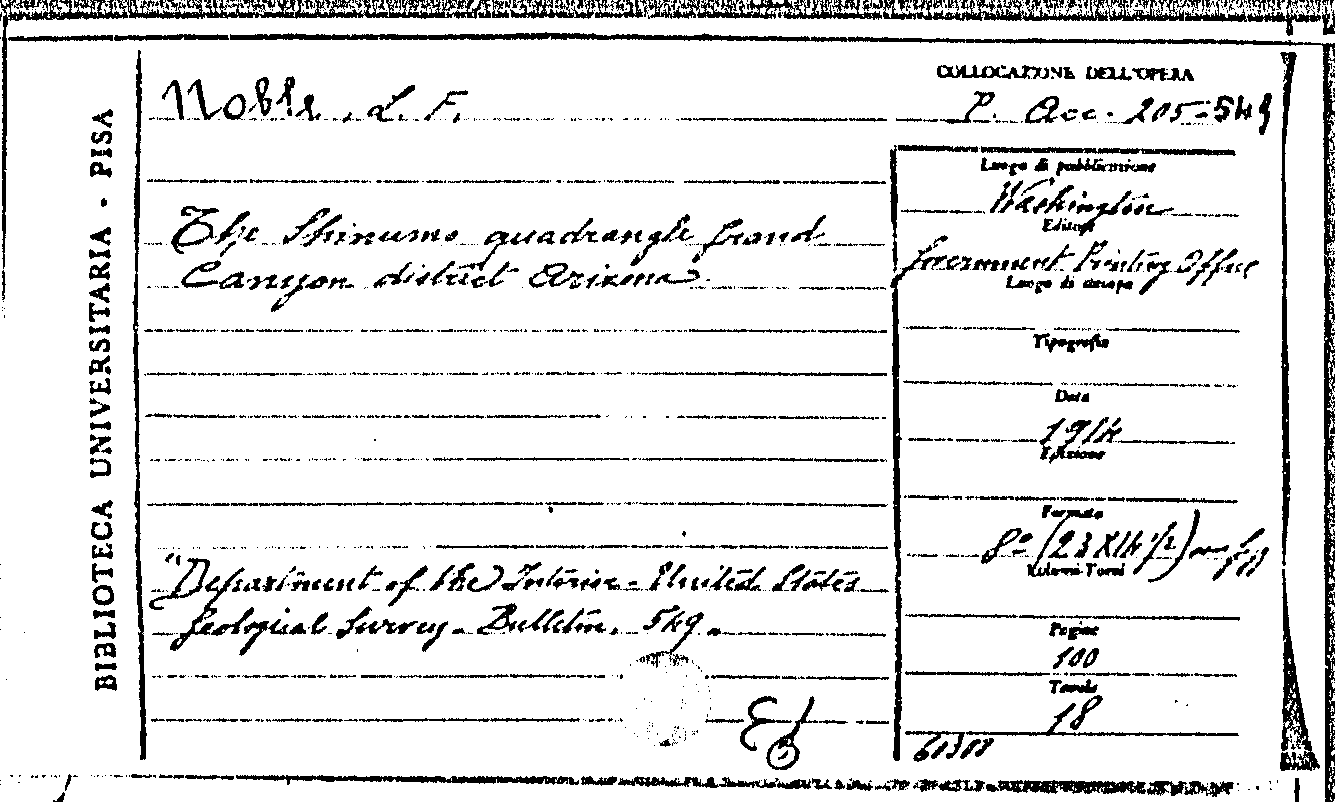 BIBLIOTECA UNIVERSITARIA - PISA
Noble, L. F.
COLLOCAZIONE DELL'OPERA
P. Acc. 205-549
The Shinumo quadrangle Grand
Canyon district Arizona
Luogo di pubblicazione
Washington
Editore
Government Printing Office
Luogo di stampa
Tipografia
Data
1914
Edizione
Formato
8º (23 X 14 1/2)
Volumi-Tomi
Pagine
100
Tavole
18
"Department of the Interior - United States
Geological Survey - Bulletin. 549.